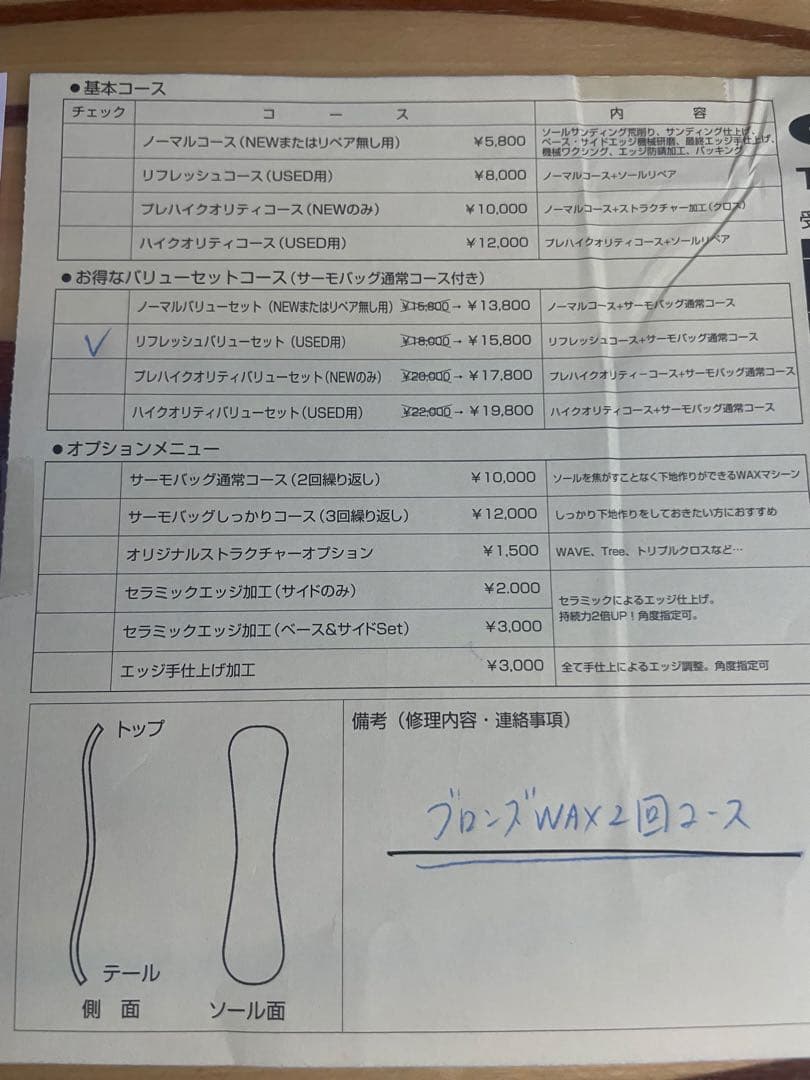 ●基本コース
チェック コース 内容
ノーマルコース(NEWまたはリペア無し用) ¥5,800 ソールサンディング荒削り、サンディング仕上げ、
ベース・サイドエッジ機械研磨、最終エッジ手仕上げ、
機械ワクシング、エッジ防錆加工、パッキング
リフレッシュコース(USED用) ¥8,000 ノーマルコース+ソールリペア
プレハイクオリティコース(NEWのみ) ¥10,000 ノーマルコース+ストラクチャー加工(クロス)
ハイクオリティコース(USED用) ¥12,000 プレハイクオリティコース+ソールリペア
●お得なバリューセットコース(サーモバッグ通常コース付き)
ノーマルバリューセット(NEWまたはリペア無し用) ¥15,800→¥13,800 ノーマルコース+サーモバッグ通常コース
リフレッシュバリューセット(USED用) ¥18,000→¥15,800 リフレッシュコース+サーモバッグ通常コース
プレハイクオリティバリューセット(NEWのみ) ¥20,000→¥17,800 プレハイクオリティーコース+サーモバッグ通常コース
ハイクオリティバリューセット(USED用) ¥22,000→¥19,800 ハイクオリティコース+サーモバッグ通常コース
●オプションメニュー
サーモバッグ通常コース(2回繰り返し) ¥10,000 ソールを焦がすことなく下地作りができるWAXマシーン
サーモバッグしっかりコース(3回繰り返し) ¥12,000 しっかり下地作りをしておきたい方におすすめ
オリジナルストラクチャーオプション ¥1,500 WAVE、Tree、トリプルクロスなど…
セラミックエッジ加工(サイドのみ) ¥2.000 セラミックによるエッジ仕上げ。
持続力2倍UP!角度指定可。
セラミックエッジ加工(ベース&サイドSet) ¥3,000
エッジ手仕上げ加工 ¥3,000 全て手仕上によるエッジ調整。角度指定可
トップ
テール
側面 ソール面
備考(修理内容・連絡事項)
ブロンズWAX2回コース